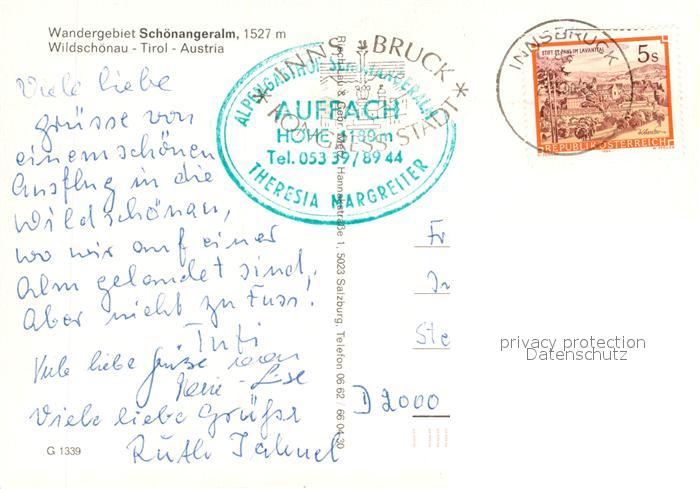 Wandergebiet Schönangeralm, 1527 m
Wildschönau - Tirol - Austria
Viele liebe
Grüsse von
einem schönen
Ausflug in die
Wildschönau,
wo wir auf einer
Alm gelandet sind,
Aber nicht zu Fuss!
Viele liebe Grüsse von
Viele liebe Grüsse
Ruth
G 1339
ALPENGASTHOF SCHÖNANGERALM
AUFFACH
HÖHE 1180m
Tel. 053 39/89 44
THERESIA MARGREITER
INNSBRUCK
* KONGRESS-STADT *
5023 Salzburg, Telefon 06 62 / 66 04 30
INNSBRUCK
STIFT ST. PAUL IM LAVANTTAL
5 S
REPUBLIK ÖSTERREICH
Fr
Ste
D 2000
privacy protection
Datenschutz